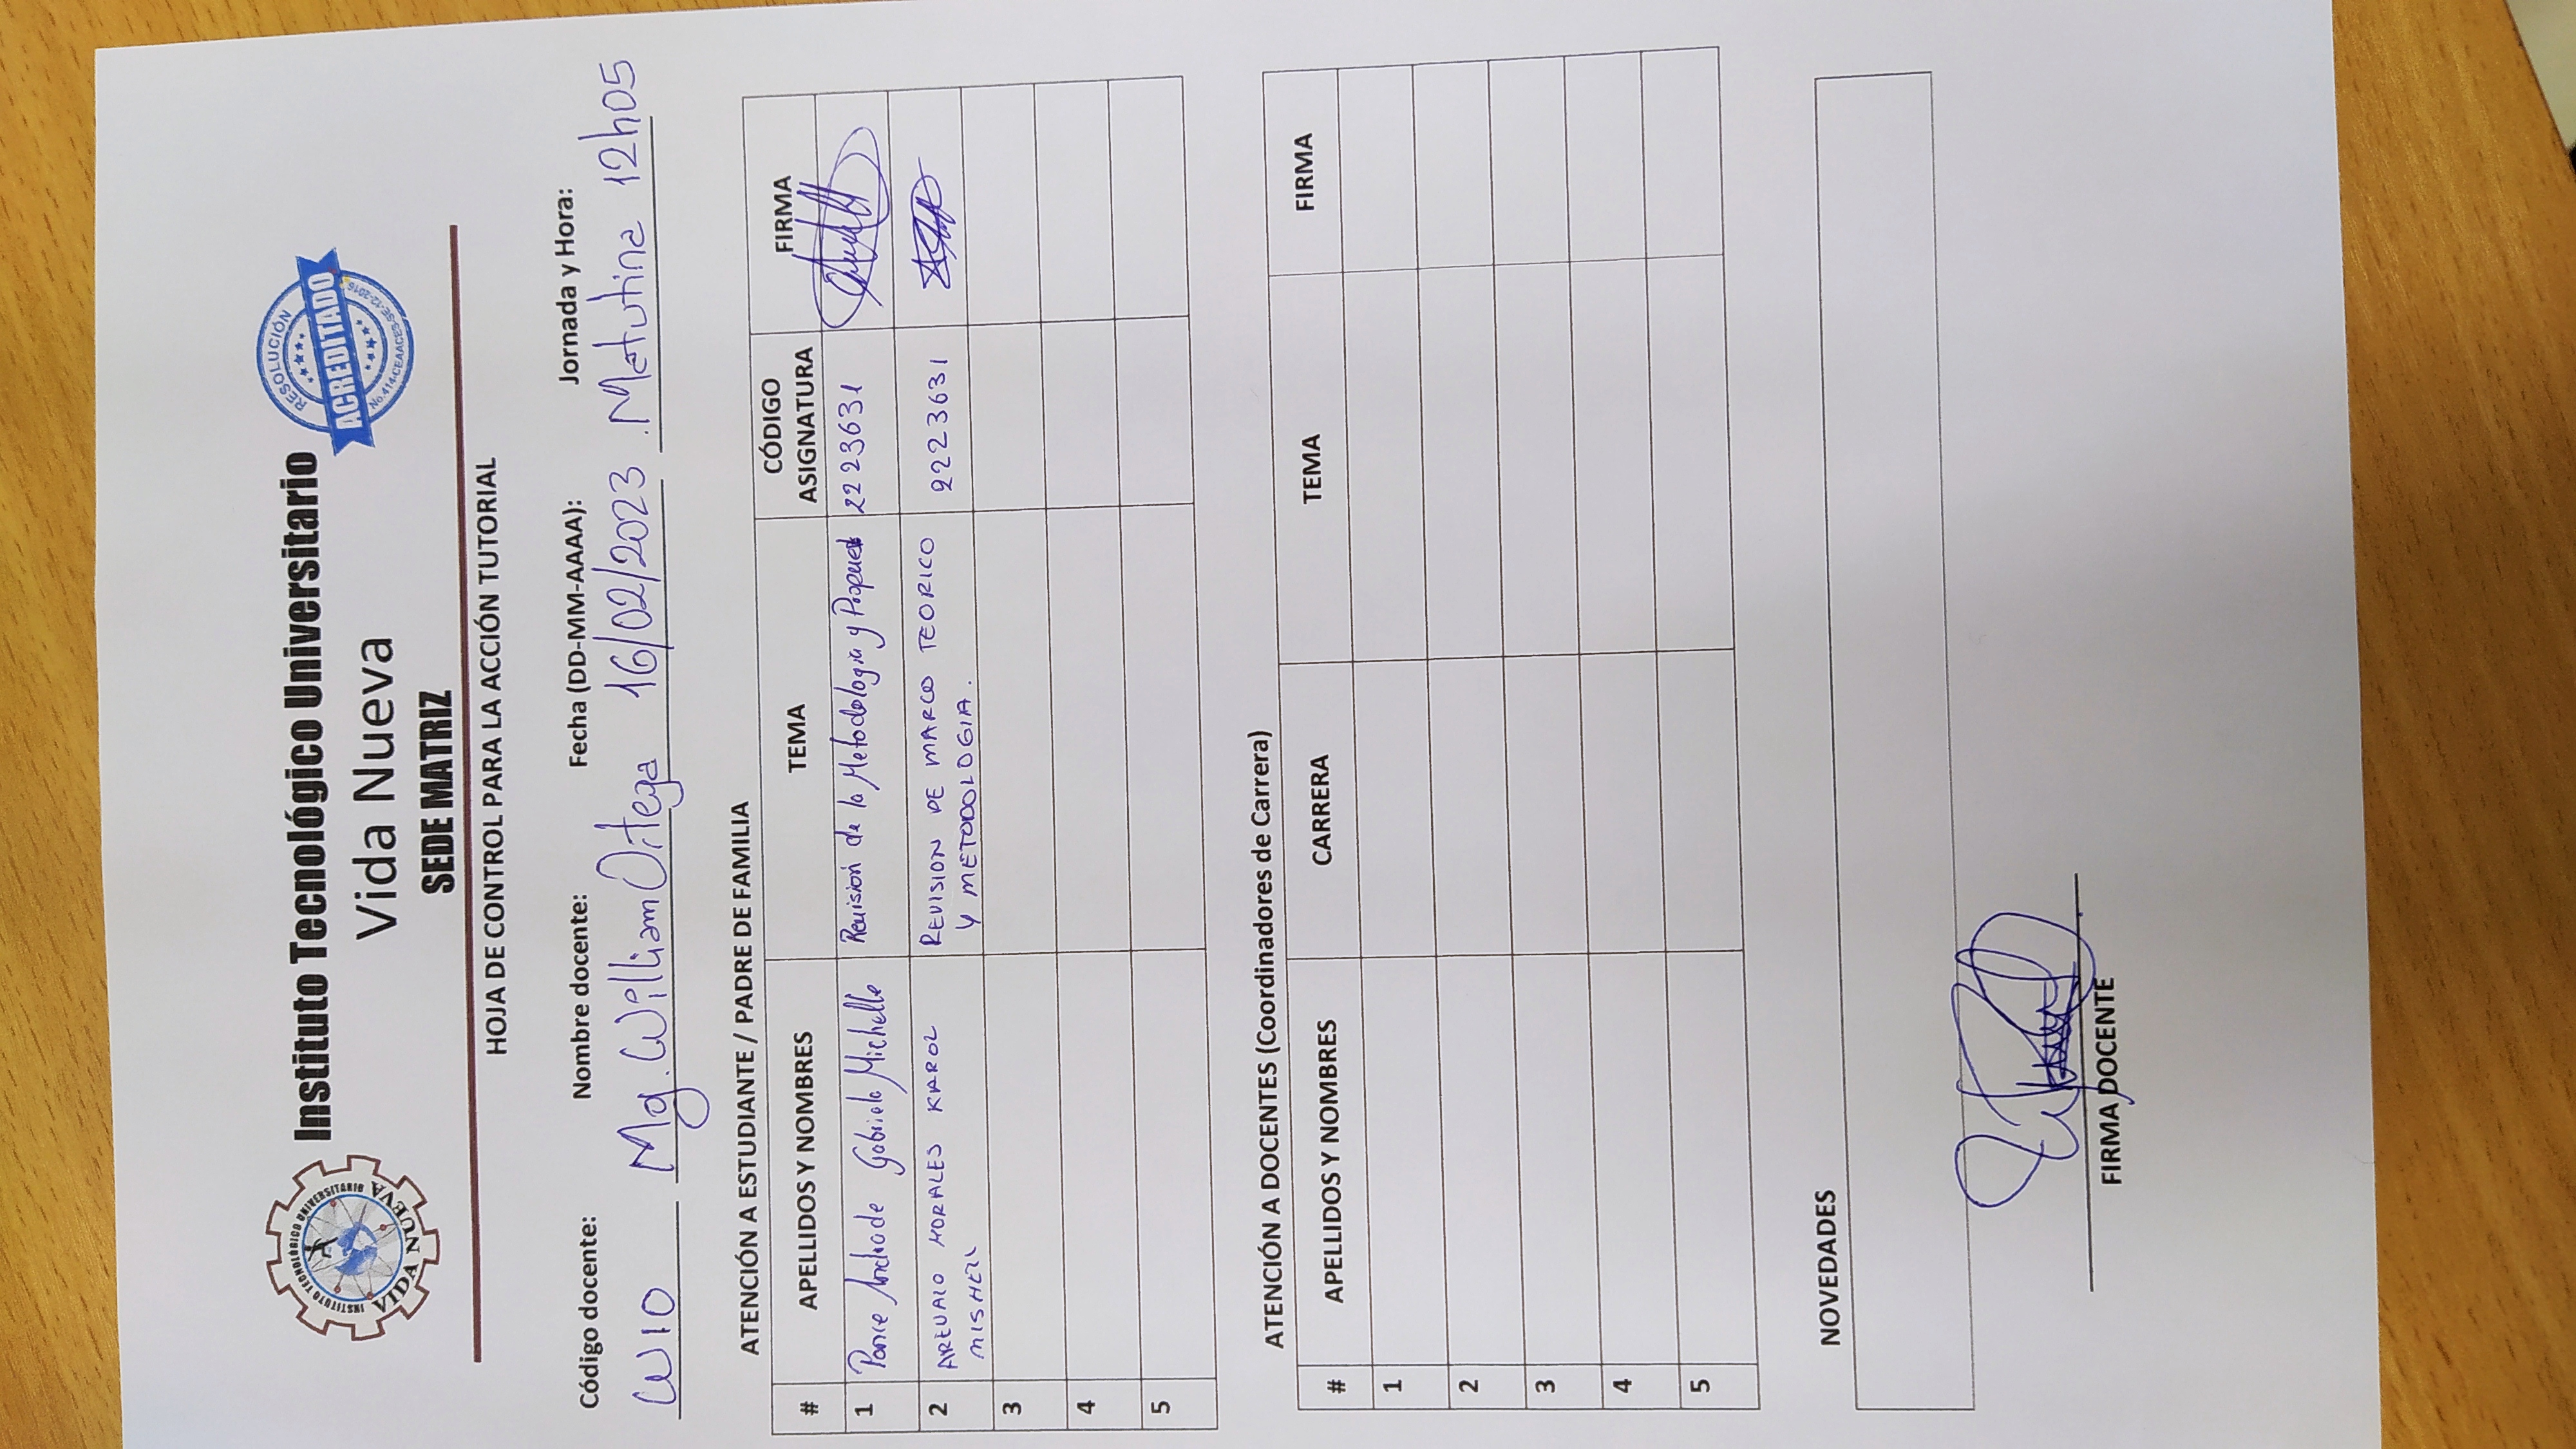 INSTITUTO TECNOLÓGICO UNIVERSITARIO
VIDA NUEVA
Instituto Tecnológico Universitario
Vida Nueva
SEDE MATRIZ
RESOLUCIÓN
ACREDITADO
No.414-CEAACES-SE-12-2016
HOJA DE CONTROL PARA LA ACCIÓN TUTORIAL
Código docente: Nombre docente: Fecha (DD-MM-AAAA): Jornada y Hora:
WIO Mg. William Ortega 16/02/2023 Matutina 12h05
ATENCIÓN A ESTUDIANTE / PADRE DE FAMILIA
# APELLIDOS Y NOMBRES TEMA CÓDIGO ASIGNATURA FIRMA
1 Ponce Andrade Gabriela Michelle Revisión de la Metodologia y Propuest 2223631
2 AREVALO MORALES KAROL REVISION DE MARCO TEORICO 2223631
MISHELL Y METODOLOGIA.
3
4
5
ATENCIÓN A DOCENTES (Coordinadores de Carrera)
# APELLIDOS Y NOMBRES CARRERA TEMA FIRMA
1
2
3
4
5
NOVEDADES
FIRMA DOCENTE